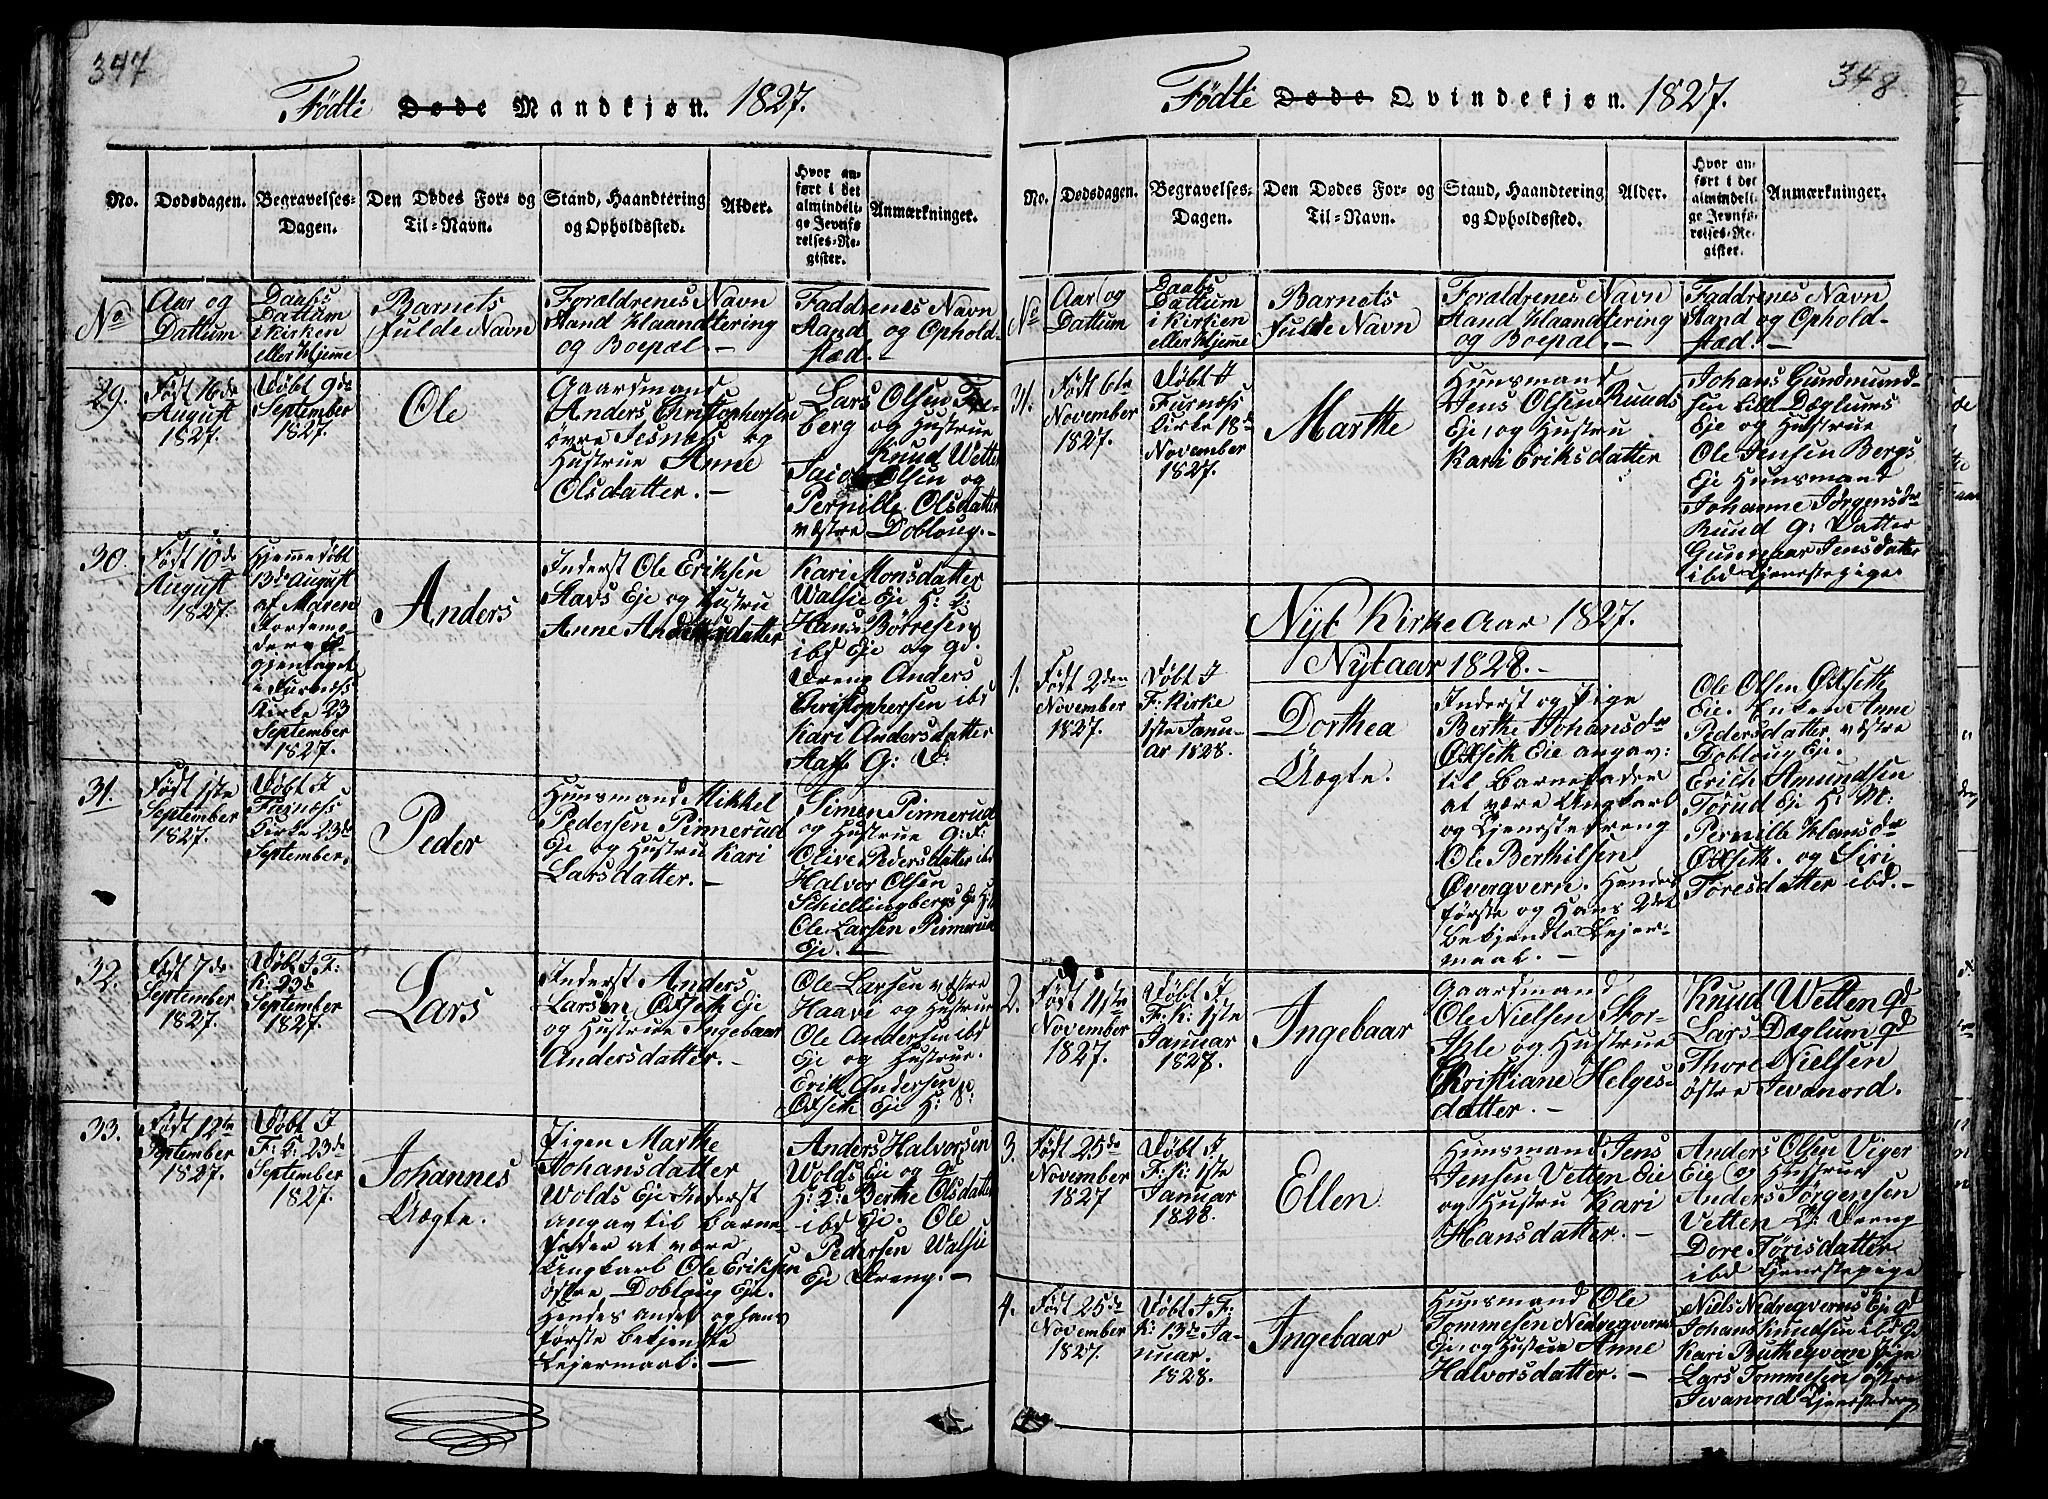 347
Fødte Døde Mandkjøn. 1827.
No.
Dødsdagen.
Begravelses-
Dagen.
Den Dødes For- og
Til-Navn.
Stand, Haandtering
og Opholdssted.
Alder.
Hvor an-
ført i det
almindeli-
ge Jevnfø
relses-Re-
gister.
Anmærkninger.
No
Aar og
Dattum
Daabs
Dattum
i Kirken
eller Hjeme
Barnets
fulde Navn
Foraldrenes Navn
Stand Haandtering
og Boepæl. -
Faddrenes Navn
Stand og Ophold-
stæd. -
29.
Født 16de
August
1827.
Døbt 9de
September
1827.
Ole
Gaardmand
Anders Christophersen
øvre Jesnæs og
Hustrue Anne
Olsdatter. -
Lars Olsen
berg og Hustrue
Knud Wetten
Jacob Olsen og
Pernille Olsdatter
væstre Dobloug. -
30.
Født 10de
August
1827.
Hjemmedøbt
13de August
af Maren
Jordemo-
der og
gjentaget
i Furnæss
Kirke 23
September
1827.
Anders
Inderst Ole Eriksen
Stavs Eje og Hustru
Anne Andersdatter
Kari Monsdatter
Walsie Eje H: K:
Hans Børresen
ibd Eje og gd.
Dreng Anders
Christophersen ibd
Kari Andersdatter
Staff G: D:
31.
Født 1ste
September
1827.
Døbt I
Furnæss
Kirke 23de
September.
Peder
Huusmand Mikkel
Pedersen Pinnerud
Eje og Hustru Kari
Larsdatter. -
Simen Pinnerud
og Hustrue G: F:
Olive Pedersdatter ibd
Halvor Olsen
Schiellingbergs Eje H:
Ole Larsen Pinnerud
Eje. -
32.
Født 7de
September
1827.
Døbt I F:
K: 23de
September
1827.
Lars
Inderst Anders
Larsen Oxseth Eje
og Hustrue Ingebaar
Andersdatter. -
Ole Larsen væstre
Haave og Hustrue
Ole Andersen ibd
Eje og Hustrue.
Erik Andersen
Oxseth Eje H: S:
33.
Født 12te
September
1827.
Døbt I
F: K: 23de
September
1827.
Johannes
Uægte.
Pigen Marthe
Johansdatter
Wolds Eje Inderst
angav til Barne
fader at være
Ungkarl Ole Eriksen
østre Dobloug Eje.
Hendes andet og hans
første bekjendte
Lejermaal. -
Anders Halvorsen
Wolds Eje og gd
H: Q: Berthe Olsdatter
ibd Eje. Ole
Pedersen Walsie
Eje Dreng. -
348
Fødte Døde Qvindekjøn. 1827.
No.
Dødsdagen.
Begravelses-
Dagen.
Den Dødes For- og
Til-Navn.
Stand, Haandtering
og Opholdssted.
Alder.
Hvor an-
ført i det
almindeli-
ge Jevnfø-
relses-Re-
gister.
Anmærkninger.
No
Aar og
Dattum
Daabs
Dattum
i Kirken
eller Hjeme
Barnets
fulde Navn
Foraldrenes Navn
Stand Haandtering
og Boepæl. -
Faddrenes Navn
Stand og Ophold-
stæd. -
31.
Født 6te
November
1827.
Døbt I
Furnæss
Kirke 18de
November
1827.
Marthe
Huusmand
Jens Olsen Ruuds
Eje, og Hustru
Kari Eriksdatter
Johans Gundmund-
sen Lille Dæglums
Eje og Hustrue
Ole Jensen Bergs
Eje Huusmand
Johanne Jørgensdr
Ruud G: Datter
Gunnaar Jensdatter
ibd Tjenestepige
Nyt Kirke Aar 1827.
Nytaar 1828. -
1.
Født 2den
November
1827.
Døbt I
F: Kirke
1ste Janu-
ar 1828.
Dorthea
Uægte.
Inderst og Pige
Berthe Johansdr
Oxseth Eje angav:
til Barnefader
at være Ungkarl
og Tjenestedreng
Ole Berthilsen
Øvergvern. Hendes
første og Hans 2det
bekjendte Lejer-
maal. -
Ole Olsen Oxseth
Eje. Enken Anne
Pedersdatter væstre
Dobloug Eje.
Erich Amundsen
Torud Eje H: M:
Pernille Hansdr
Oxseth. og Siri
Toresdatter ibd. -
2.
Født 11te
November
1827.
Døbt I
F: K: 1ste
Januar
1828.
Ingebaar
Gaardmand
Ole Nielsen Stor-
Ihle og Hustrue
Kristiane Helges-
datter. -
Knud Wetten gd
Lars Dæglum gd
Thore Nielsen
østre Jevanord.
3.
Født 25de
November
1827
Døbt I
F: K: 1ste
Januar
1828.
Ellen
Huusmand Jens
Jensen Vetten Eje
og Hustru Kari
Hansdatter. -
Anders Olsen Viger
Eje og Hustrue
Anders Jørgensen
Vetten Dreng
Dore Tørisdatter
ibd Tjenestepige
4.
Født 25de
November
1827.
Døbt I F:
K: 13de Ja-
nuar.
1828.
Ingebaar
Huusmand Ole
Tommesen Nedregverns
Eje, og Hustrue Anne
Halvorsdatter. -
Niels Nedregverns Eje gd
Johans Knudsen ibd Eje
Kari Buthegvern Pige
Lars Tommesen østre
Jevanord Tjenestedreng